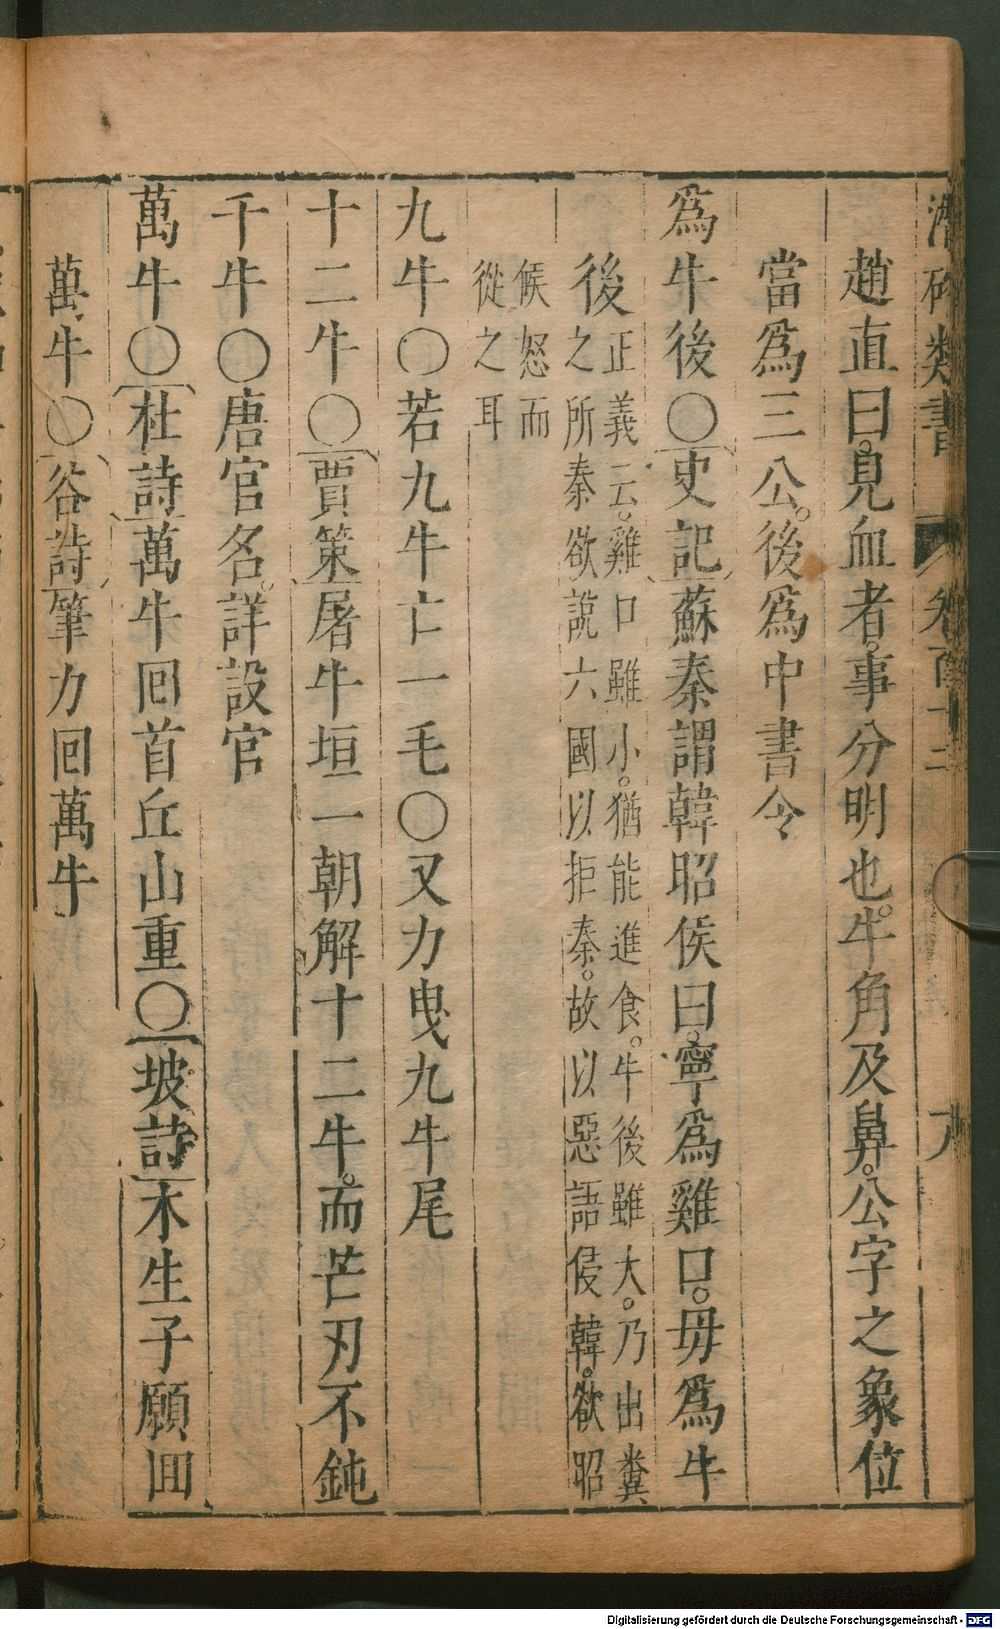 類書 卷百十二
趙直曰。見血者。事分明也。牛角及鼻。公字之象位
當爲三公。後爲中書令
爲牛後〇史記蘇秦謂韓昭侯曰。寧爲雞口。毋爲牛
後 正義云。雞口雖小。猶能進食。牛後雖大。乃出糞
之所秦欲說六國以拒秦。故以惡語侵韓。欲昭
候怒而
從之耳
九牛〇若九牛亡一毛〇又力曳九牛尾
十二牛〇賈策屠牛垣一朝解十二牛。而芒刃不鈍
千牛〇唐官名。詳設官
萬牛〇杜詩萬牛回首丘山重〇坡詩木生子願回
萬牛〇谷詩筆力回萬牛
Digitalisierung gefördert durch die Deutsche Forschungsgemeinschaft - DFG